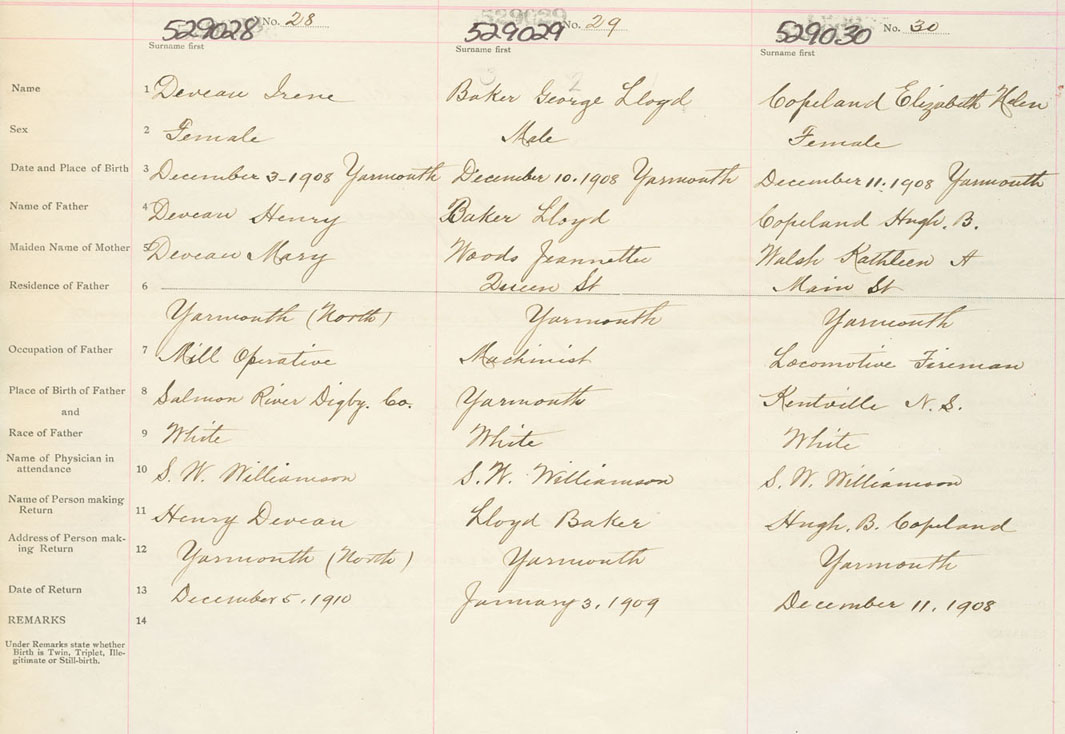 529028 No. 28 529029 No. 29 529030 No. 30
Surname first Surname first Surname first
Name 1 Deveau Irene Baker George Lloyd Copeland Elizabeth Helen
Sex 2 Female Male Female
Date and Place of Birth 3 December 3-1908 Yarmouth December 10. 1908 Yarmouth December 11. 1908 Yarmouth
Name of Father 4 Deveau Henry Baker Lloyd Copeland Hugh. B.
Maiden Name of Mother 5 Deveau Mary Woods Jeannette Walsh Kathleen A
Residence of Father 6 Queen St Main St
Yarmouth (North) Yarmouth Yarmouth
Occupation of Father 7 Mill Operative Machinist Locomotive Fireman
Place of Birth of Father 8 Salmon River Digby. Co. Yarmouth Kentville N.S.
and
Race of Father 9 White White White
Name of Physician in
attendance 10 S. W. Williamson S. W. Williamson S. W. Williamson
Name of Person making
Return 11 Henry Deveau Lloyd Baker Hugh. B. Copeland
Address of Person mak-
ing Return 12 Yarmouth (North) Yarmouth Yarmouth
Date of Return 13 December 5. 1910 January 3. 1909 December 11. 1908
REMARKS 14
Under Remarks state whether
Birth is Twin, Triplet, Ille-
gitimate or Still-birth.